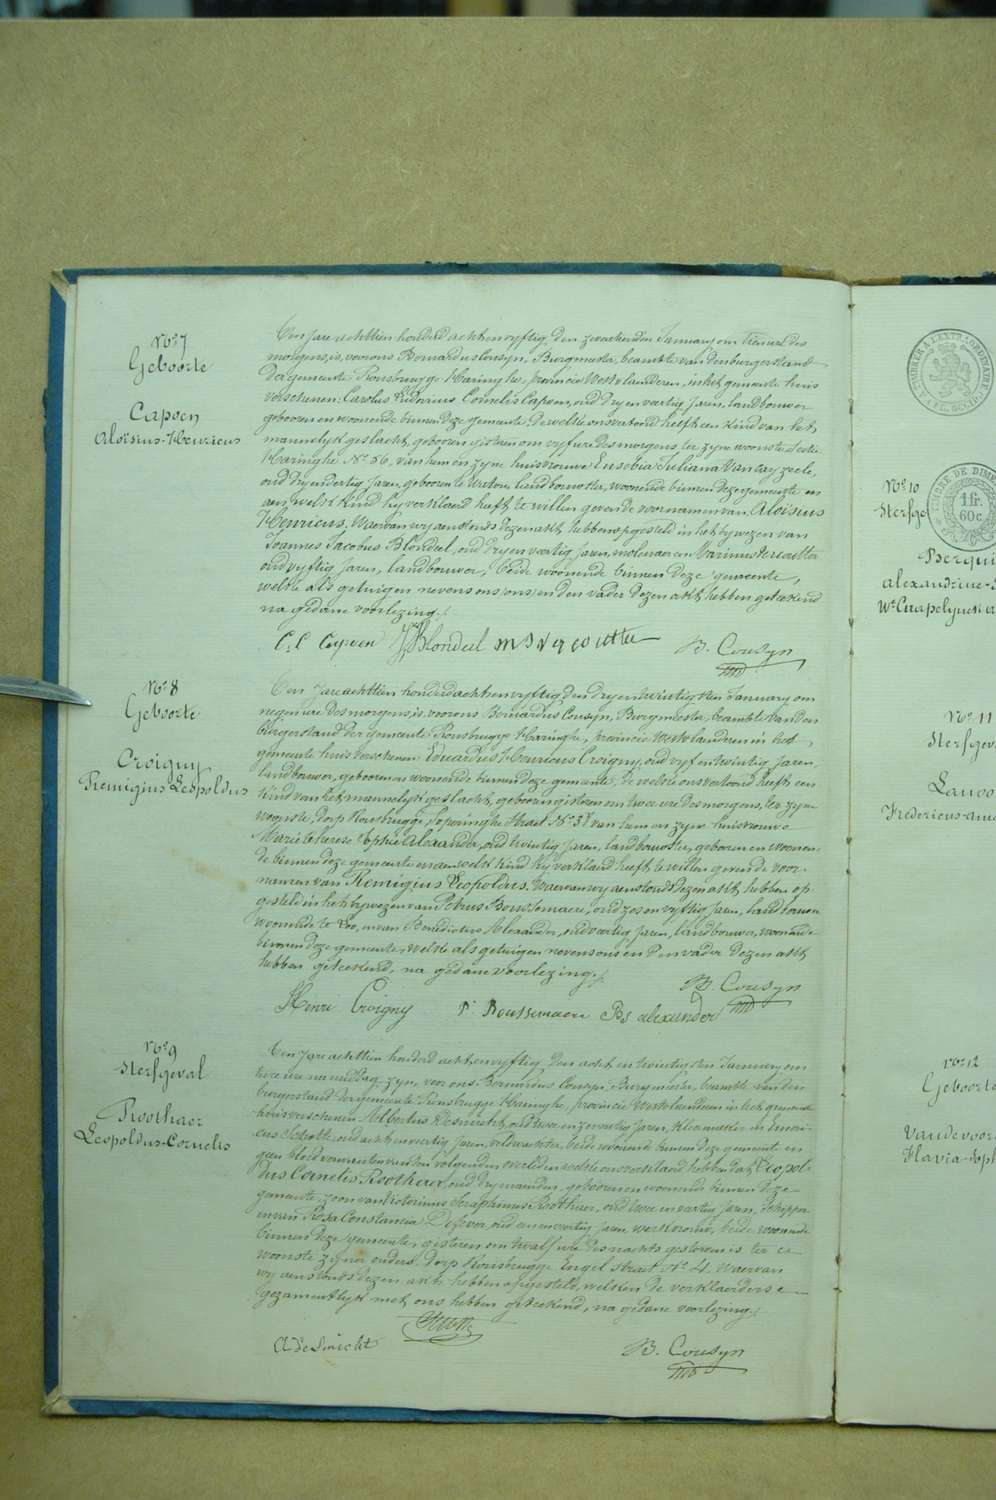 N.° 7
Geboorte
Capoen
Aloïsius-Henricus
Den Jare achttien honderd acht en vyftig, den zevenentwintigsten January om tien ure des
morgens, is, voor ons Bernardus Cousyn, Burgmeester, beambte van den burgerstand
der gemeente Rousbrugge-Haringhe, provincie Westvlanderen, in het gemeente huis
verschenen Carolus Ludovicus Cornelis Capoen, oud dry en veertig Jaren, landbouwer
geboren en woonende binnen deze gemeente, de welke ons vertoond heeft een kind van het
mannelyk geslacht, geboren gisteren om vyf ure des morgens ter zyne woonste, sectie
Haringhe N.° 86, van hem en zyne huisvrouwe Eusebia Juliana Van Cayzeele,
oud dry en dertig Jaren, geboren te Watou, landbouwster, woonende binnen deze gemeente en
aen welk kind hy verklaerd heeft te willen geven de voornamen van Aloïsius
Henricus. Waervan wy aenstonds dezen akt hebben opgesteld in het bywezen van
Joannes Jacobus Blondeel, oud dry en veertig Jaren, molenaer en Marinus Vercoutter
oud vyftig Jaren, landbouwer, beide woonende binnen deze gemeente,
welke als getuigen nevens ons en den vader dezen akt hebben geteekend
na gedane voorlezing./.
C. L. Capoen J. J. Blondeel M J Vercoutter B. Cousyn
N.° 8
Geboorte
Croigny
Remigius Leopoldus
Den Jare achttien honderd acht en vyftig, den dry en twintigsten January om
negen ure des morgens, is, voor ons Bernardus Cousyn, Burgmeester, beambte van den
burgerstand der gemeente Rousbrugge-Haringhe, provincie Westvlanderen in het
gemeente huis verschenen Eduardus Henricus Croigny, oud vyf en twintig Jaren,
landbouwer, geboren en woonende binnen deze gemeente, de welke ons vertoond heeft een
kind van het mannelyk geslacht, geboren gisteren om twee ure des morgens, ter zyne
woonste, dorp Rousbrugge, Poperinghe Straet N.° 38 van hem en zyne huisvrouwe
Marie Therese Sophie Alexander, oud twintig Jaren, landbouwster, geboren en woonen-
de binnen deze gemeente en aen welk kind hy verklaerd heeft te willen geven de voor-
namen van Remigius Leopoldus. Waervan wy aenstonds dezen akt hebben op-
gesteld in het bywezen van Petrus Boussemaere, oud zes en vyftig Jaren, landbouwer
woonende te Loo, en van Benedictus Alexander, oud veertig Jaren, landbouwer, woonende
binnen deze gemeente, welke als getuigen nevens ons en den vader dezen akt
hebben geteekend, na gedane voorlezing./.
B. Cousyn
Henri Croigny P. Boussemaere Bs alexander
N.° 9
Sterfgeval
Roothaer
Leopoldus-Cornelis
Den Jare achttien honderd acht en vyftig, den acht en twintigsten January om
twee ure na middag, zyn, voor ons Bernardus Cousyn, Burgmeester, beambte van den
burgerstand der gemeente Rousbrugge-Haringhe, provincie Westvlanderen in het gemeente
huis verschenen Albertus Desmicht, oud twee en zeventig Jaren, kleermaker en
oud acht en veertig Jaren, veldwachter, beide woonende binnen deze gemeente en
geen bloedverwanten van den volgenden overleden welke ons verklaerd hebben dat Leopol-
dus Cornelis Roothaer, oud dry maenden, geboren en woonende binnen deze
gemeente, zoon van Victorinus Seraphinus Roothaer, oud twee en veertig Jaren, schipper
en van Rosa Constancia Defever, oud een en veertig Jaren, werkvrouw, beide woonende
binnen deze gemeente, gisteren om twalf ure des nachts gestorven is ter
woonste zyner ouders, dorp Rousbrugge Engel straet N.° 4. Waervan
wy aenstonds dezen akt hebben opgesteld, welken de verklaerders
gezamentlyk met ons hebben geteekend, na gedane voorlezing./.
A. Desmicht B. Cousyn
TIMBRE A L'EXTRAORDINAIRE
TIMBRE DE DIME
1 fr.
60 c.
N.° 10
Sterfge
alexandrine-
N.° 11
Sterfgeva
Fredericus-
N.° 12
Geboorte
Vandevoor
Flavia-Soph